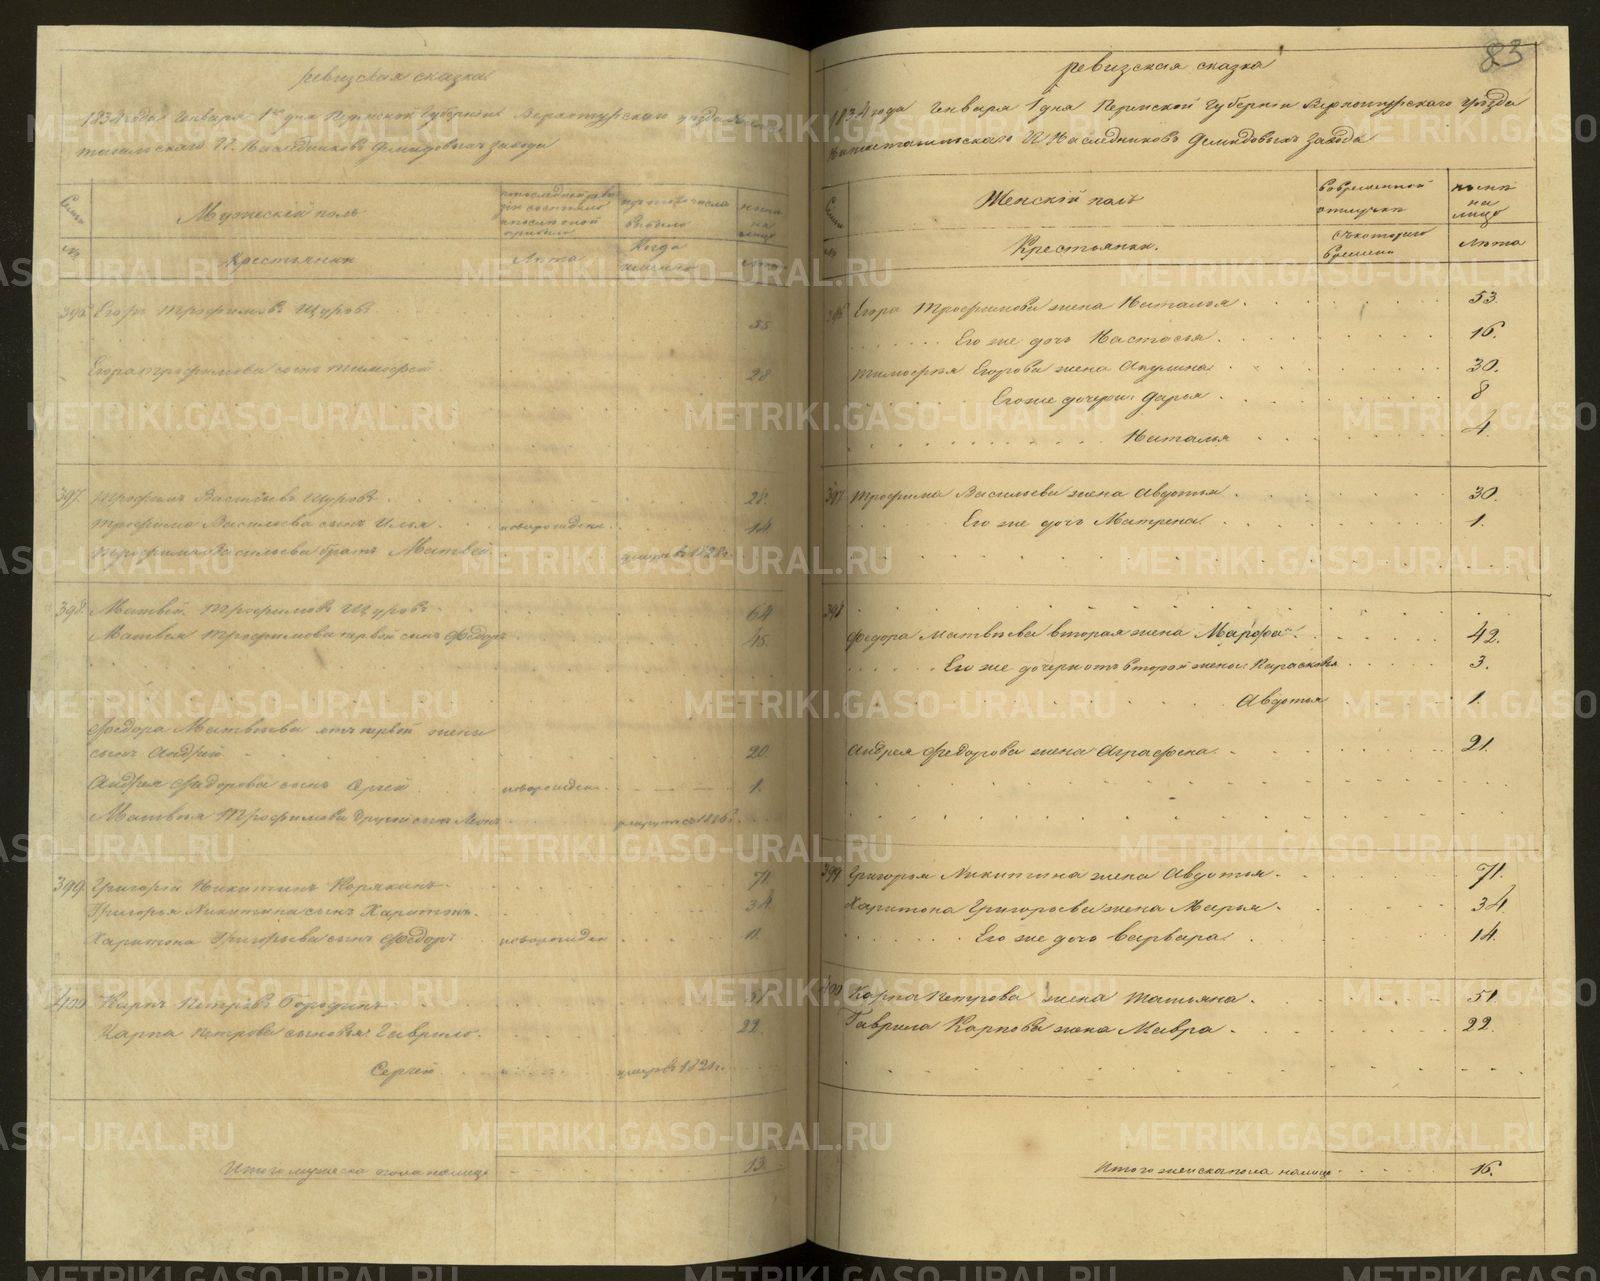 ревизская сказка
1834 года Генваря 1го дня Пермской Губернiи Верхотурскаго уезда
тагильскаго ГГ. Наследниковъ Демидовыхъ завода
Мужескiй полъ
Крестьяники
Лѣта
Когда
выбыло
ныне на лицо
396 Егоръ Трофимовъ Щуровъ 55
Егора Трофимова сынъ Тимофей 28
397 Трофимъ Васильевъ Щуровъ 28.
Трофима Васильева сынъ Илья новорожден. 14
Трофима Васильева братъ Матвей умеръ въ 1828 г.
398 Матвей Трофимовъ Щуровъ 64
Матвея Трофимова первой сынъ Федоръ 45.
Федора Матвѣева отъ первой жены
сынъ Андрей 20.
Андрея Федорова сынъ Сергей новорожден. 1.
Матвѣя Трофимова другой сынъ
399 Григорiй Никитинъ Корякинъ 71.
Григорья Никитина сынъ Харитонъ. 34.
Харитона Григорьева сынъ Федоръ новорожден 11.
400 Карпъ Петровъ Бородинъ 51
Карпа Петрова сыновья: Гаврило. 22.
Сергей умеръ въ 1821 г.
Итого мужеска пола налицо 13.
83
ревизская сказка
1834 года Генваря 1 дня Пермской Губернiи Верхотурскаго уезда
Нижнетагильскаго ГГ. Наследниковъ Демидовыхъ завода
Женскiй полъ
Крестьянки.
вовременной отлучке
съ котораго времени
ныне на лицо
Лѣта
396 Егора Трофимова жена Наталья 53.
Его же дочь Настасья 16.
Тимофея Егорова жена Акулина 30.
Его же дочери: Дарья 8
Наталья 4.
397 Трофима Васильева жена Авдотья 30.
Его же дочь Матрена. 1.
398
Федора Матвѣева вторая жена Марфа 42.
Его же дочери отъ второй жены: Парасковья 3.
Авдотья 1.
Андрея Федорова жена Аграфена 21.
399 Григорья Никитина жена Авдотья 71.
Харитона Григорьева жена Марья 34.
Его же дочь Варвара. 14.
400 Карпа Петрова жена Татьяна. 51.
Гаврила Карпова жена Мавра. 22.
Итого женска пола налицо 16.
METRIKI.GASO-URAL.RU